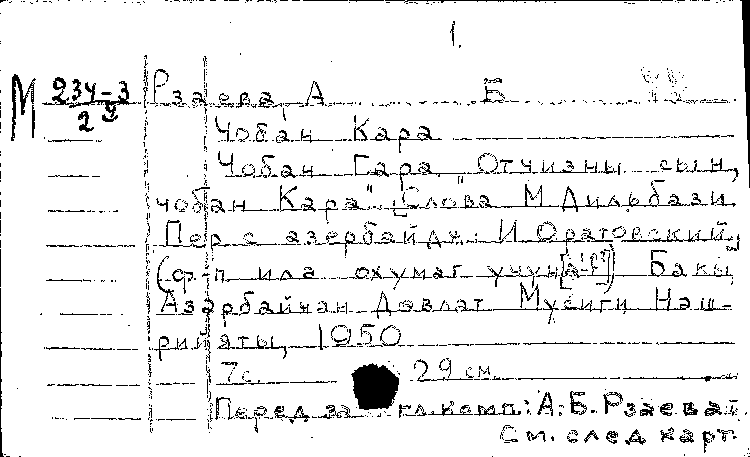 1.
М 234-3 Рзаева, А Б
2
Чобан Кара
Чобан Гара. "Отчизны сын,
чобан Кара". [Слова М. Дильбази.
Пер. с азербайдж.: И. Оратовский,
(ф-п ила охумаг учун Бакы,
Азәрбайҹан Дөвлат Мусиги Нәш-
рийяты, 1950
7с. 29 см.
Перед загл. комп.: А. Б. Рзаева.
См. след. карт.